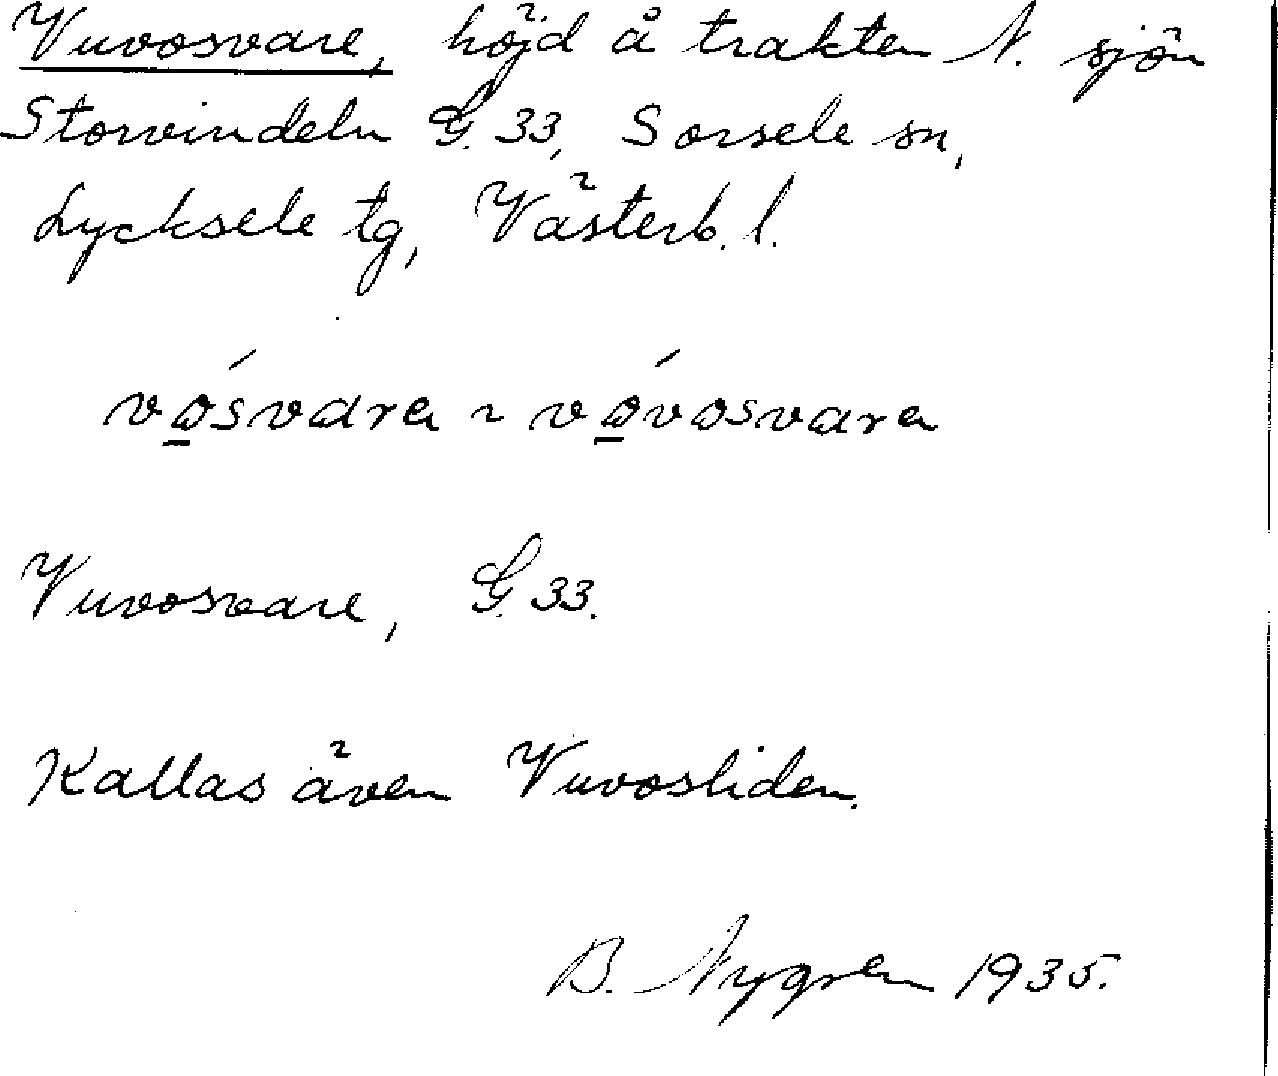 Vuvosvare, höjd å trakten N. sjön
Storvindeln G. 33, Sorsele sn,
Lycksele tg, Västerb. l.
vó̲svara ~ vó̲vosvara
Vuvosvare, G. 33.
Kallas även Vuvosliden.
B. Nygren 1935.